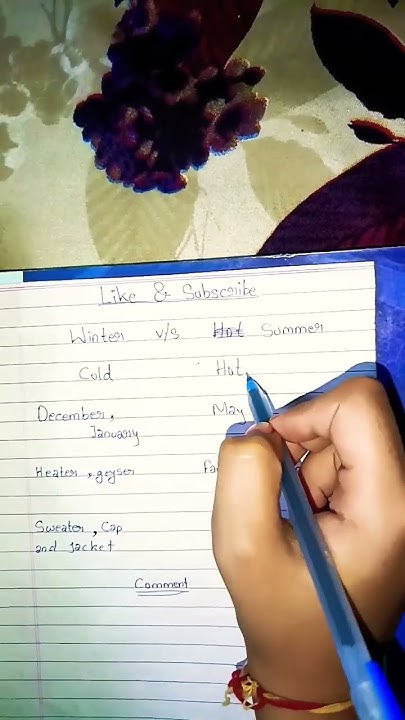 Like & Subscribe
Winter v/s Hot Summer
Cold Hot
December, May
January
Heater, geyser
Sweater, Cap
and Jacket
Comment